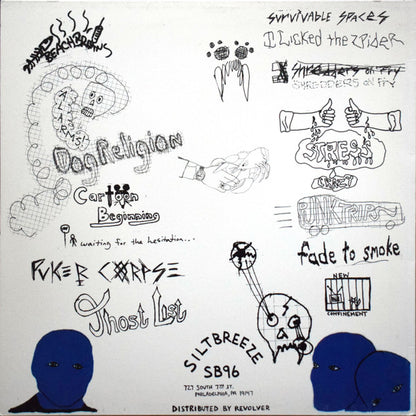 SURVIVABLE SPACES
I Licked the Spider
Shredders on Fry
SHREDDERS ON FRY
BEACH BROWNS
Dog Religion
STRESS
Cartoon
Beginning
PUNK TRIPS
waiting for the hesitation...
fade to smoke
PUKER CORPSE
NEW
CONFINEMENT
Ghost List
SILTBREEZE
SB96
727 SOUTH 7TH ST.
PHILADELPHIA, PA 19147
DISTRIBUTED BY REVOLVER